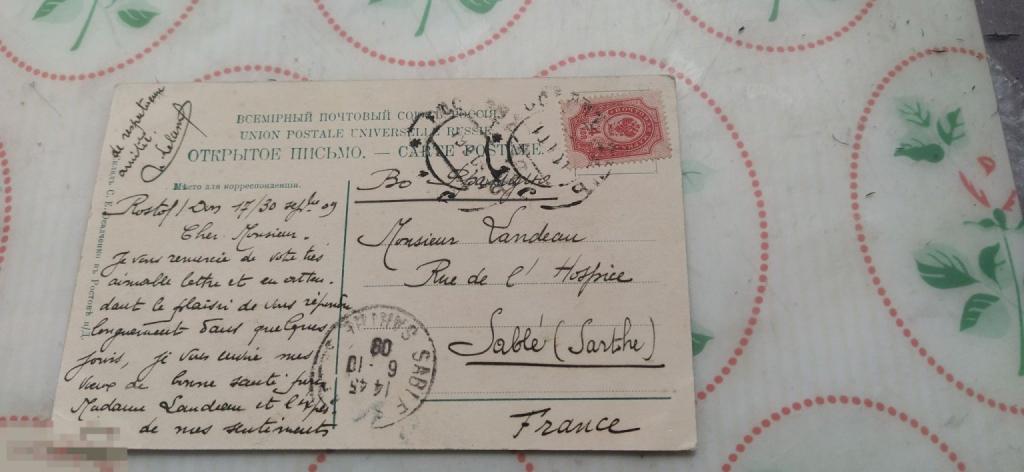 ВСЕМІРНЫЙ ПОЧТОВЫЙ СОЮЗЪ. РОССІЯ.
UNION POSTALE UNIVERSELLE. RUSSIE.
ОТКРЫТОЕ ПИСЬМО. — CARTE POSTALE.
Мѣсто для корреспонденціи.
Rostof/Don 17/30 septbre 09
Cher Monsieur.
Je vous remercie de votre très
aimable lettre et en atten-
dant le plaisir de vous répondre
longuement dans quelques
jours, je vous envoie mes
vœux de bonne santé pour
Madame Landeau et l'expr
de mes sentiments
de respectueuse
amitié
Во Францію
Monsieur Landeau
Rue de l'Hospice
Sablé (Sarthe)
France
SABLÉ
SARTHE
14 45
6 - 10
09